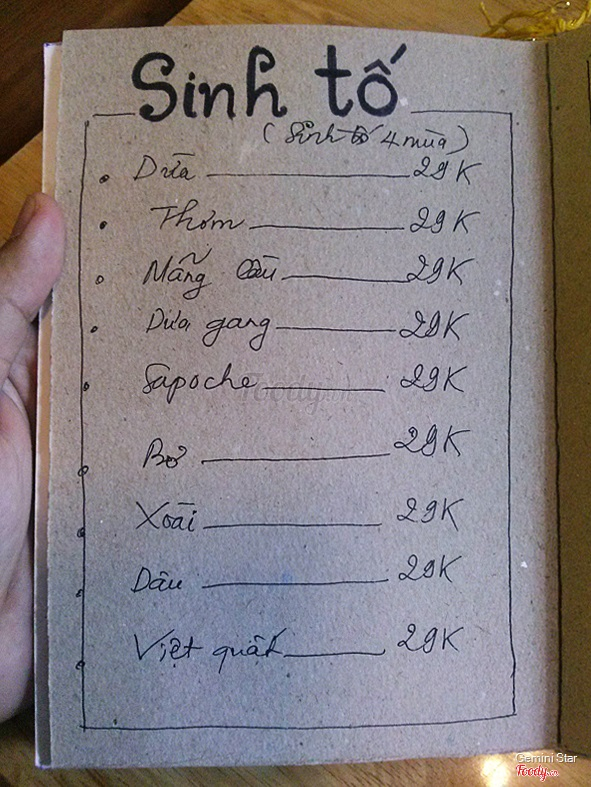 Sinh tố
(Sinh tố 4 mùa)
Dừa 29K
Thơm 29K
Mãng Cầu 29K
Dưa gang 29K
Sapoche 29K
Bơ 29K
Xoài 29K
Dâu 29K
Việt quất 29K
Foody.vn
Gemini Star
Foody.vn